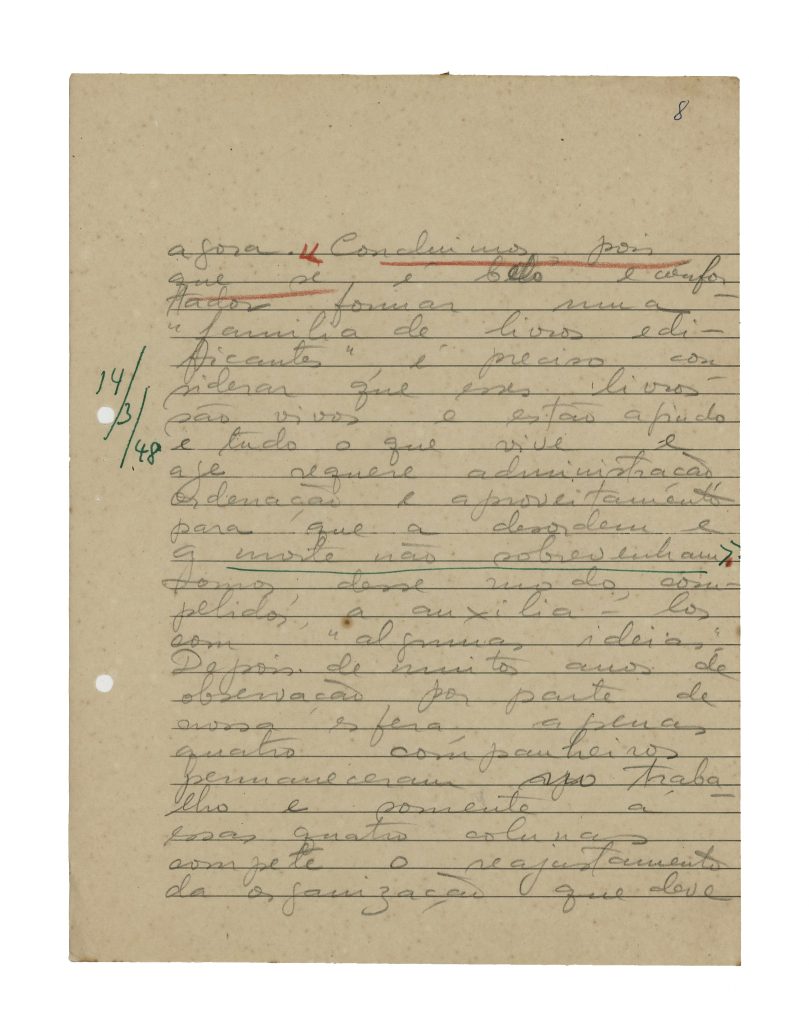 8
agora. Concluimos pois
que se é belo e confor
tador formar numa
"família de livros edi-
ficantes", é preciso con
siderar que esses livros
são vivos e estão agindo
e tudo o que vive e
age requere administração
ordenação e aproveitamento
para que a desordem e
a morte não sobrevenham.
Somos, desse modo, com-
pelidos a auxilia-los
com "algumas ideias".
Depois de muitos anos de
observação, por parte de
nossa esfera apenas
quatro companheiros
permaneceram no traba
lho e somente a
essas quatro colunas
compete o reajustamento
da organização que deve
14/3/48